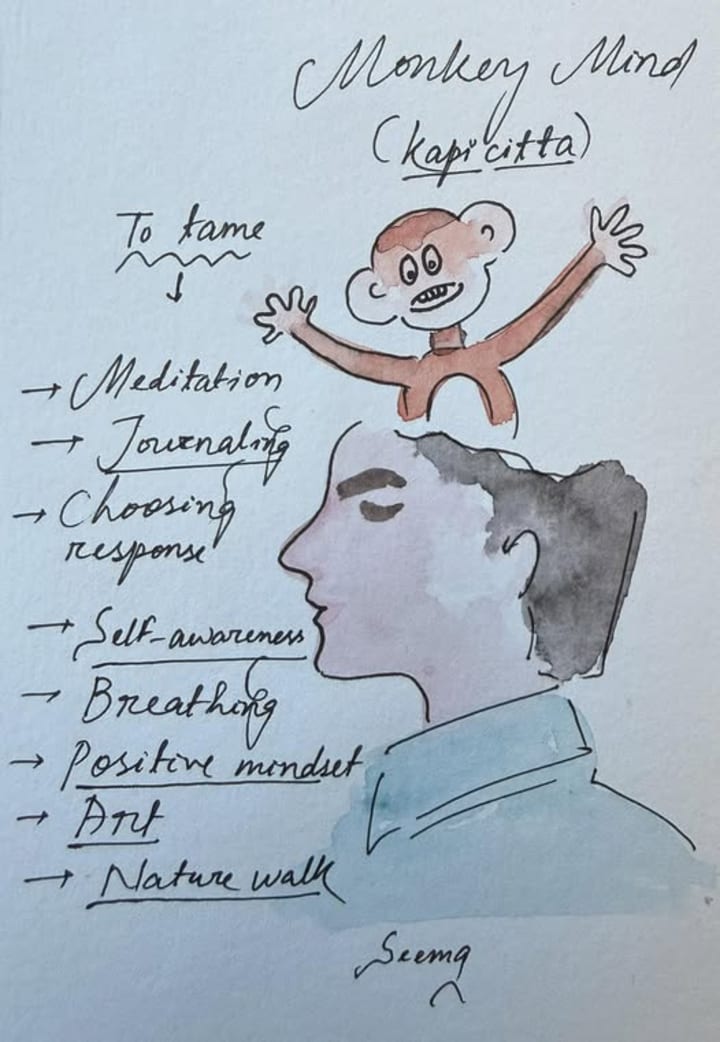 Monkey Mind
(kapicitta)
To tame
↓
→ Meditation
→ Journaling
→ Choosing
response
→ Self-awareness
→ Breathing
→ Positive mindset
→ Art
→ Nature walk
Seema